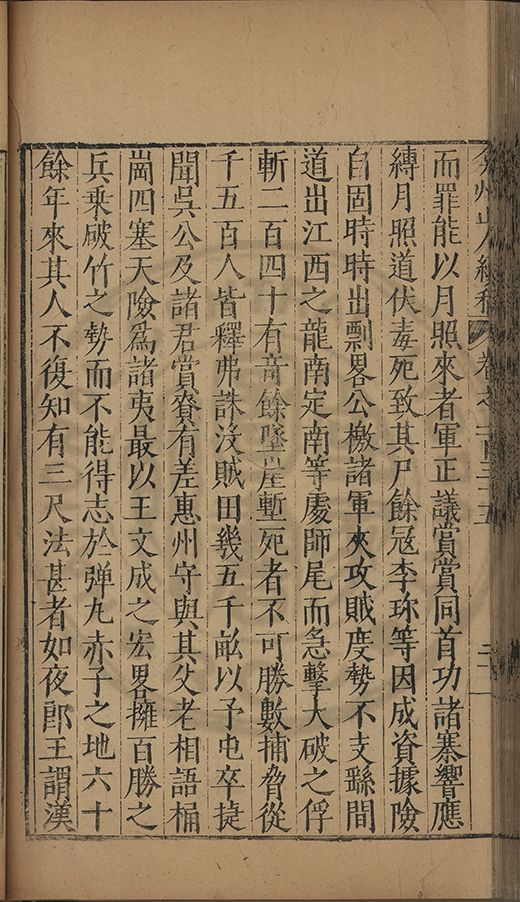 弇州山人續稿 卷之一百三十五 二
而罪能以月照來者軍正議賞賞同首功諸寨響應
縛月照道伏毒死致其尸餘冦李珎等因成資據險
自固時時出剽畧公檄諸軍夾攻賊度勢不支繇間
道出江西之龍南定南等處師尾而急擊大破之俘
斬二百四十有竒餘墜崖塹死者不可勝數捕脅從
千五百人皆釋弗誅没賊田幾五千畝以予屯卒捷
聞吳公及諸君賞賚有差惠州守與其父老相語桶
崗四塞天險爲諸夷最以王文成之宏畧擁百勝之
兵乗破竹之勢而不能得志於弹丸赤子之地六十
餘年來其人不復知有三尺法甚者如夜郎王謂漢